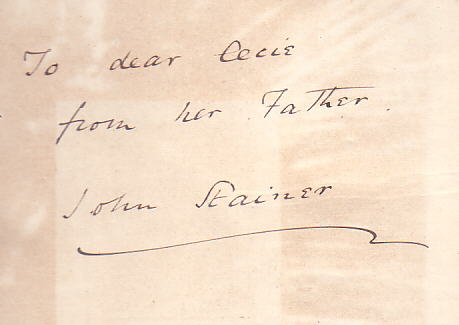 To dear Cecie
from her Father.
John Stainer